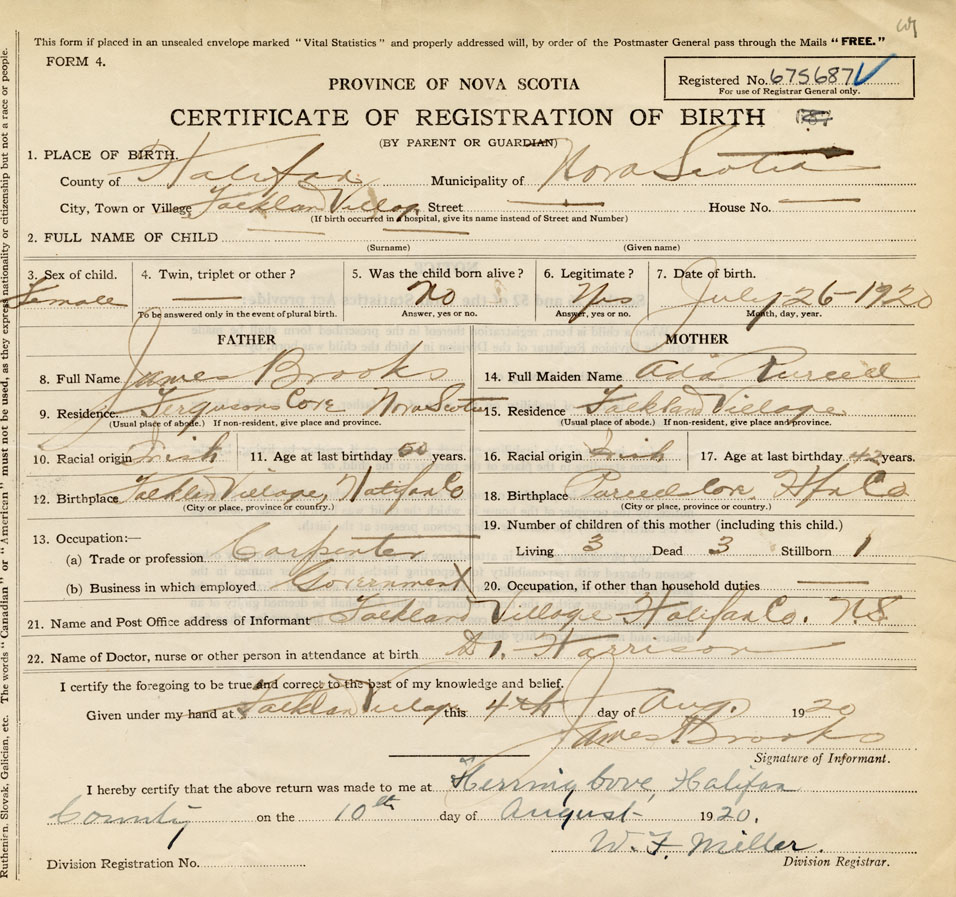 This form if placed in an unsealed envelope marked "Vital Statistics" and properly addressed will, by order of the Postmaster General pass through the Mails "FREE."
FORM 4.
Registered No. 675687
For use of Registrar General only.
PROVINCE OF NOVA SCOTIA
CERTIFICATE OF REGISTRATION OF BIRTH
(BY PARENT OR GUARDIAN)
1. PLACE OF BIRTH.
County of Halifax Municipality of Nova Scotia
City, Town or Village Falklan Village Street — House No. —
(If birth occurred in a hospital, give its name instead of Street and Number)
2. FULL NAME OF CHILD — —
(Surname) (Given name)
3. Sex of child. Female
4. Twin, triplet or other? —
To be answered only in the event of plural birth.
5. Was the child born alive? No
Answer, yes or no.
6. Legitimate? Yes
Answer, yes or no.
7. Date of birth. July-26-1920
Month, day, year.
FATHER
8. Full Name James Brooks
9. Residence Fergusons Cove Nova Scotia
(Usual place of abode.) If non-resident, give place and province.
10. Racial origin Irish 11. Age at last birthday 50 years.
12. Birthplace Falklan Village, Halifax Co
(City or place, province or country.)
13. Occupation:—
(a) Trade or profession Carpenter
(b) Business in which employed Government
MOTHER
14. Full Maiden Name Ada Purcell
15. Residence Falkland Village
(Usual place of abode.) If non-resident, give place and province.
16. Racial origin Irish 17. Age at last birthday 42 years.
18. Birthplace Purcell Cove, Hfx Co
(City or place, province or country.)
19. Number of children of this mother (including this child.)
Living 3 Dead 3 Stillborn 1
20. Occupation, if other than household duties —
21. Name and Post Office address of Informant Falkland Village Halifax Co. N.S.
22. Name of Doctor, nurse or other person in attendance at birth Dr. Harrison
I certify the foregoing to be true and correct to the best of my knowledge and belief.
Given under my hand at Falklan Village this 4th day of Aug. 1920
James Brooks
Signature of Informant.
I hereby certify that the above return was made to me at Herring Cove, Halifax
County on the 10th day of August 1920.
W. F. Miller.
Division Registrar.
Division Registration No.
Ruthenien, Slovak, Galician, etc. The words "Canadian" or "American" must not be used, as they express nationality or citizenship but not a race or people.